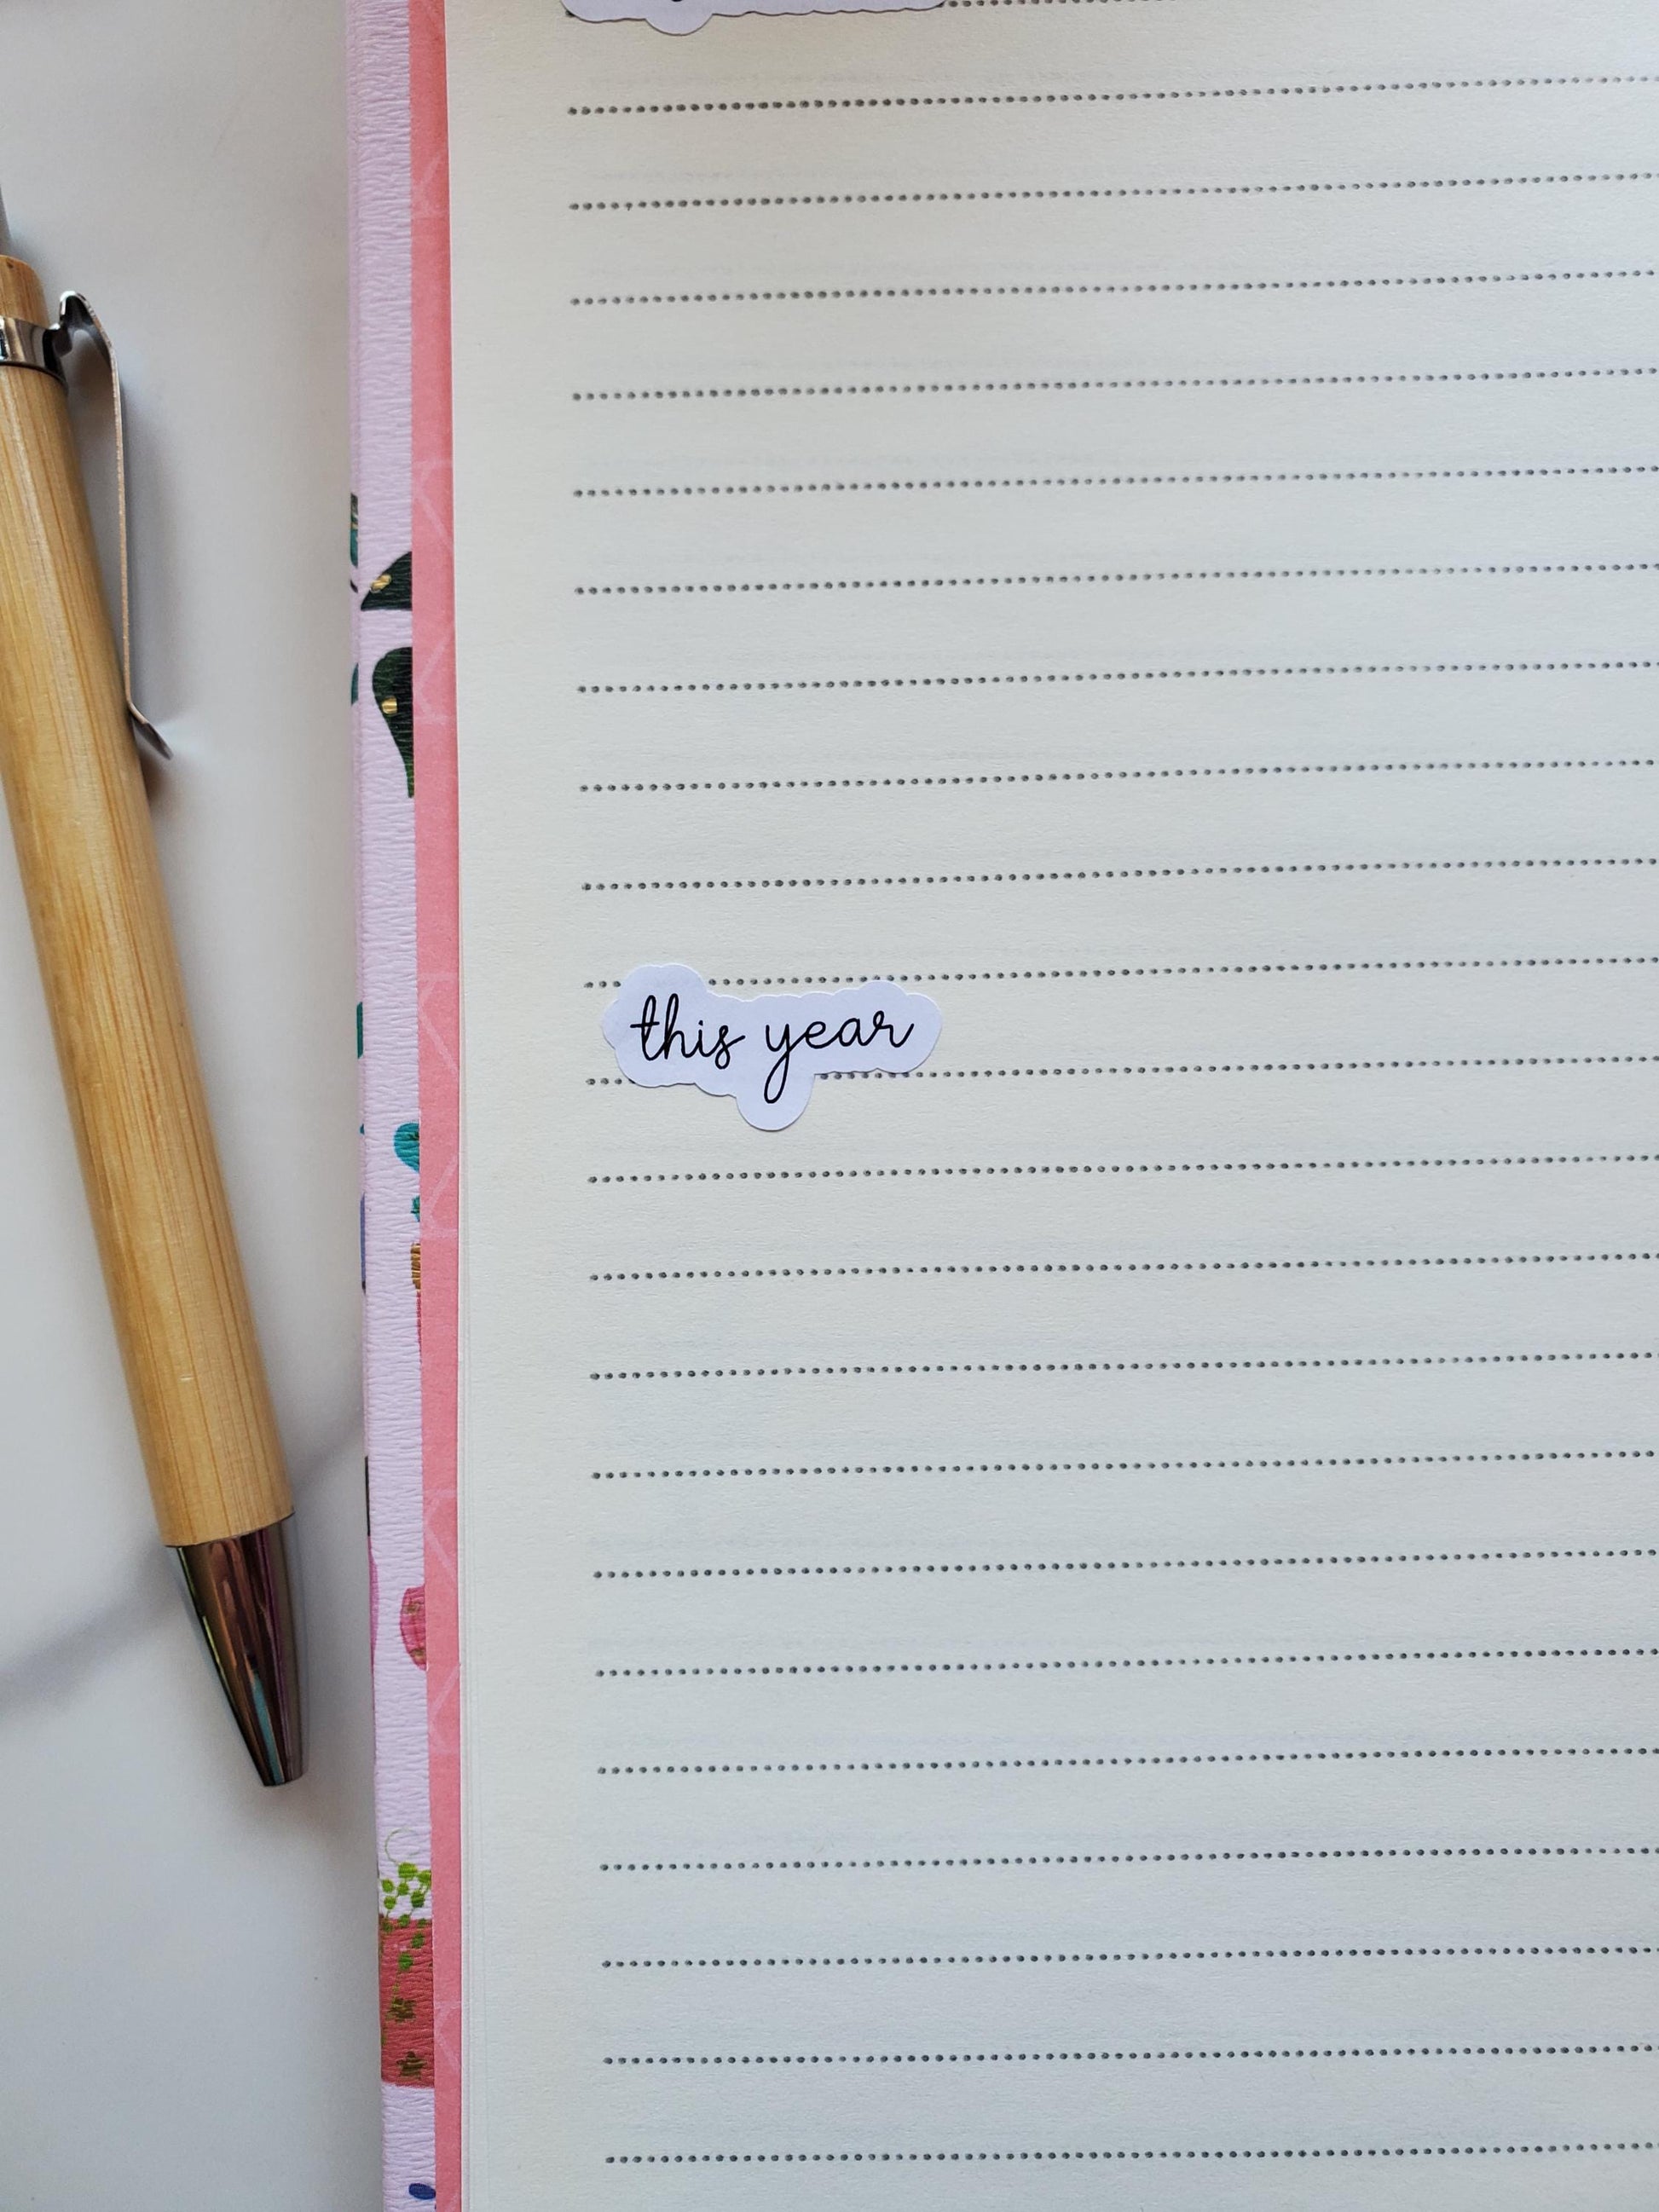 this year